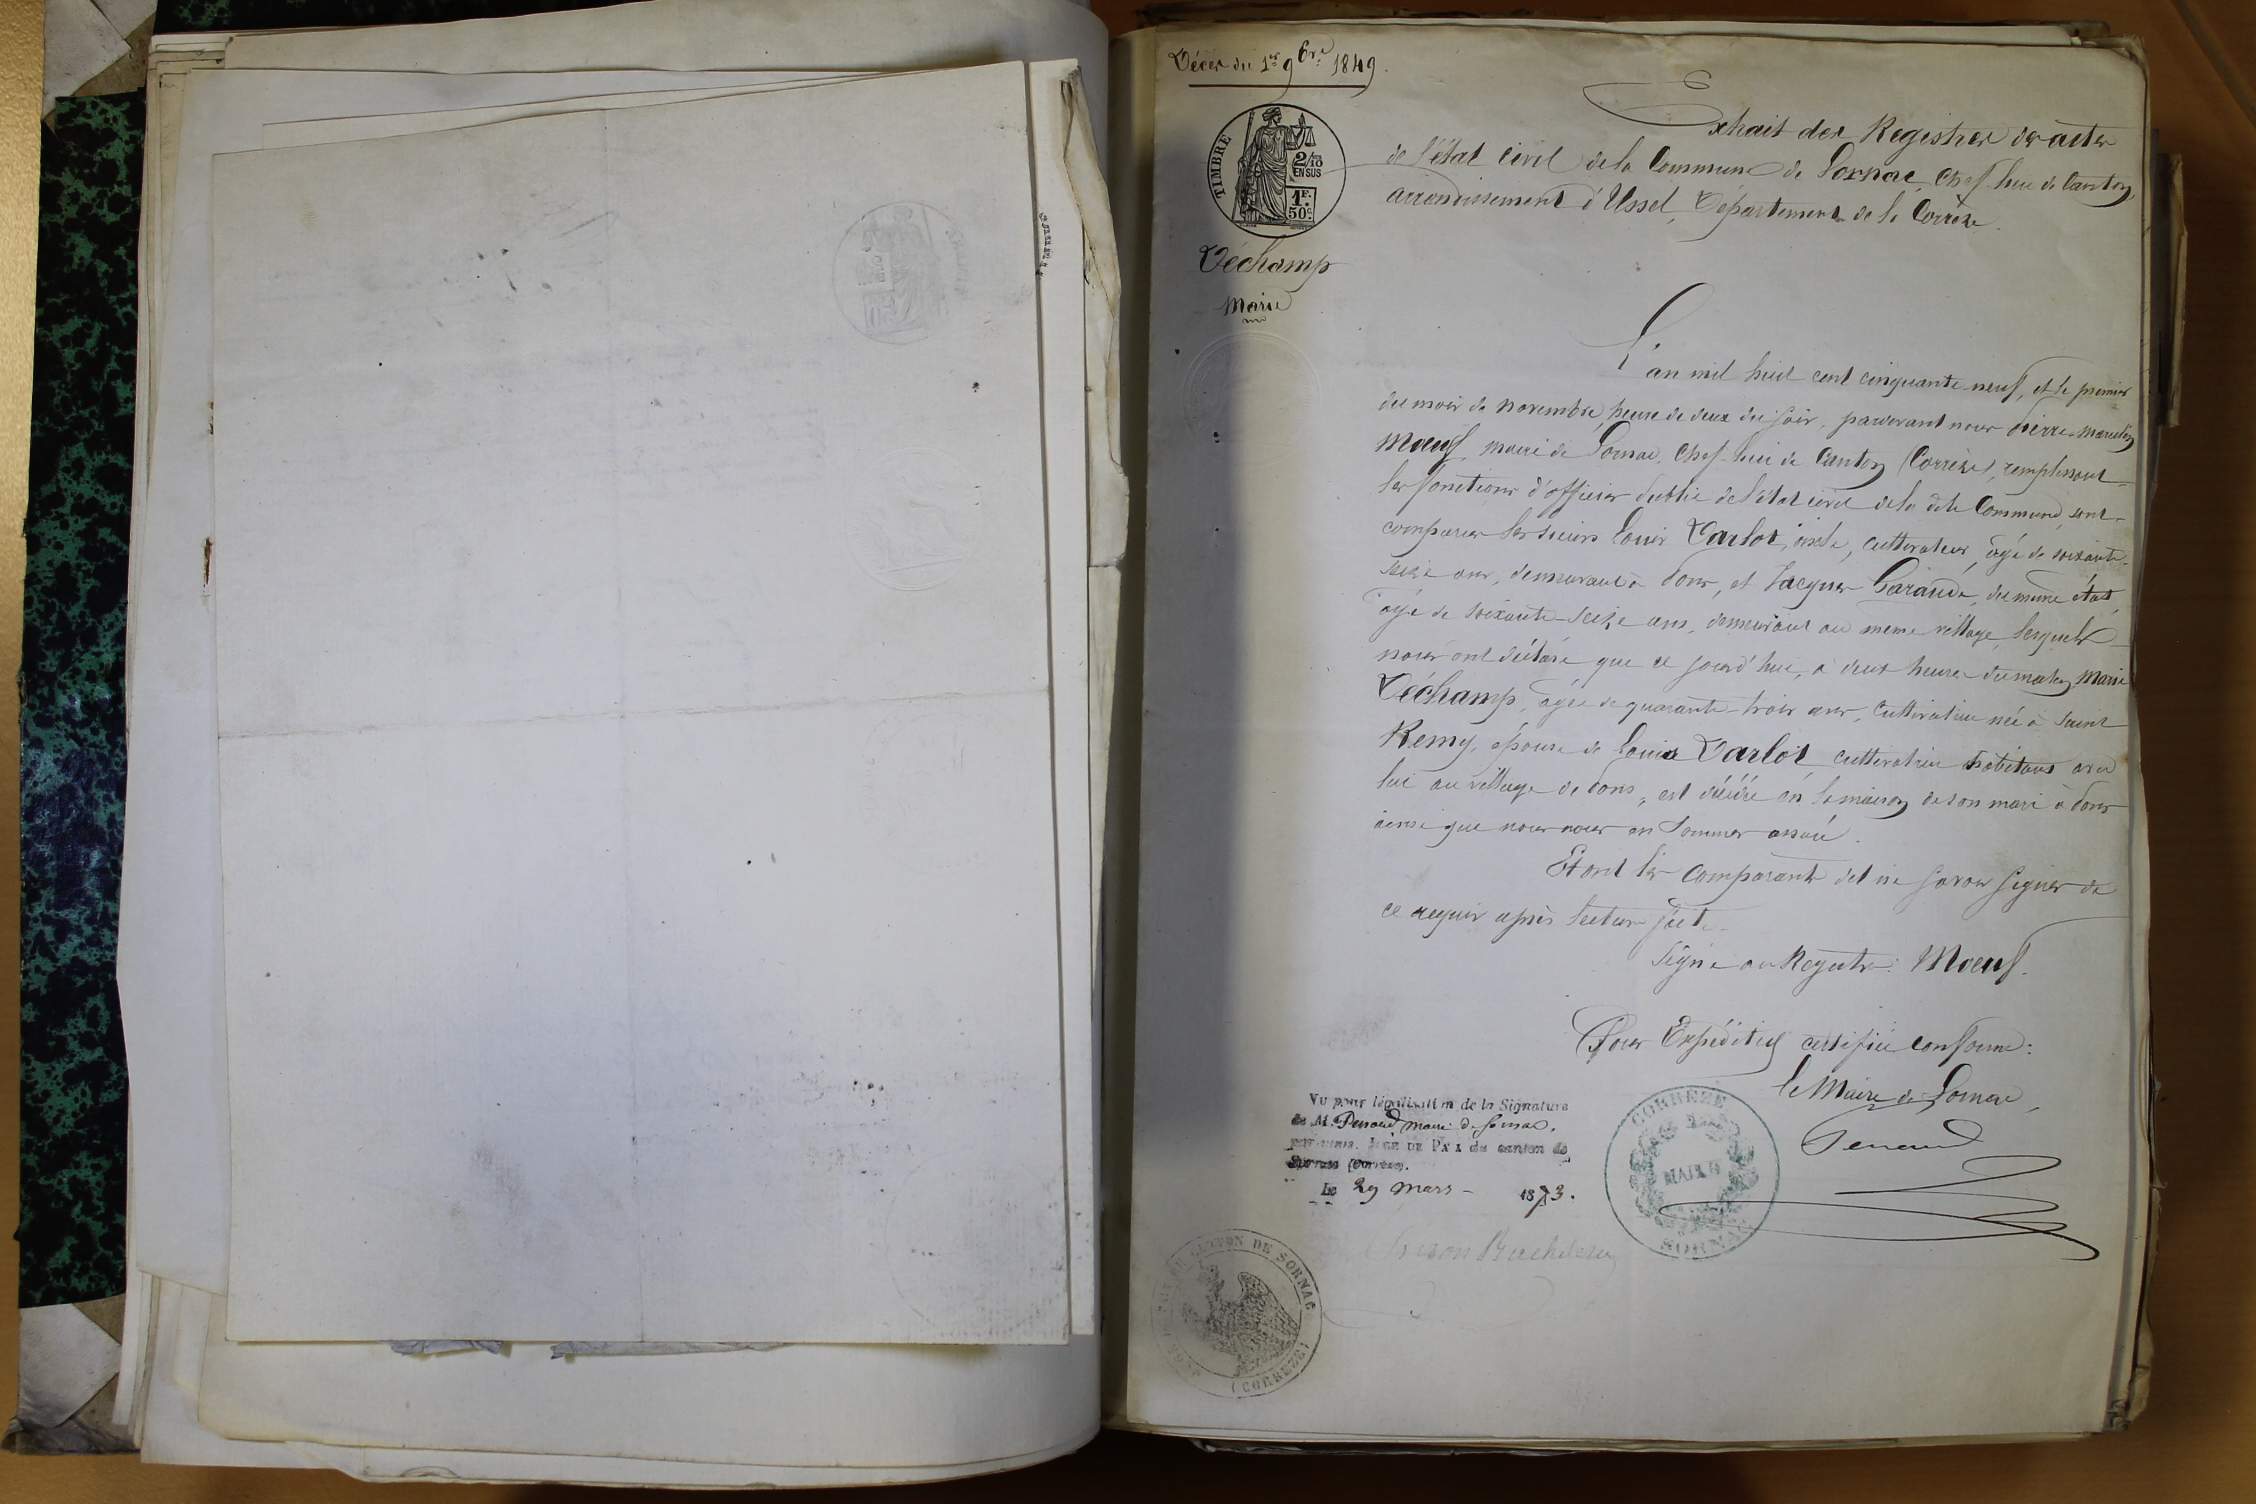 Décès du 1er 9bre 1849.
Extrait des Registres des actes
de l'état civil de la Commune de Sornac, Chef-lieu de Canton,
arrondissement d'Ussel, Département de la Corrèze.
TIMBRE
2/10
EN SUS
1F.
50c.
Déchamp
Marie
L'an mil huit cent cinquante-neuf, et le premier
du mois de novembre, heure de deux du soir, pardevant nous Pierre-Marcellin
Moeuf, maire de Sornac, Chef-lieu de Canton (Corrèze), remplissant
les fonctions d'officier public de l'état civil de la dite Commune, sont
comparus les sieurs Louis Varlot, cultivateur, âgé de soixante
seize ans, demeurant à Dons, et Jacques Garaude, du même état,
âgé de soixante-seize ans, demeurant au même village, lesquels
nous ont déclaré que ce jourd'hui, à deux heures du matin, Marie
Déchamp, âgée de quarante-trois ans, cultivatrice née à Saint
Remy, épouse de Louis Varlot, cultivateur habitant avec
lui au village de Dons, est décédée en la maison de son mari à Dons
ainsi que nous nous en sommes assuré.
Et ont les comparants dit ne savoir signer de
ce requis après lecture faite.
Signé au Registre: Moeuf.
Pour Expédition certifiée conforme:
le Maire de Sornac,
Penaud
Vu pour légalisation de la Signature
de M. Penaud maire de Sornac.
par nous, JUGE DE PAIX du canton de
Sornac (Corrèze).
Le 29 Mars 1873.
CORRÈZE
MAIRIE
SORNAC
CANTON DE SORNAC
(CORREZE)